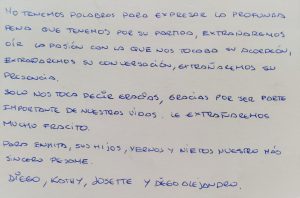 NO TENEMOS PALABRAS PARA EXPRESAR LA PROFUNDA
PENA QUE TENEMOS POR SU PARTIDA, EXTRAÑAREMOS
OÍR LA PASIÓN CON LA QUE NOS TOCABA SU ACORDEÓN,
EXTRAÑAREMOS SU CONVERSACIÓN, EXTRAÑAREMOS SU
PRESENCIA.
SOLO NOS TOCA DECIR GRACIAS, GRACIAS POR SER PARTE
IMPORTANTE DE NUESTRAS VIDAS. LE EXTRAÑAREMOS
MUCHO FRASCITO.
PARA ENMITA, SUS HIJOS, YERNOS Y NIETOS NUESTRO MÁS
SINCERO PESAME.
DIEGO, KATHY, JOSETTE Y DIEGO ALEJANDRO.